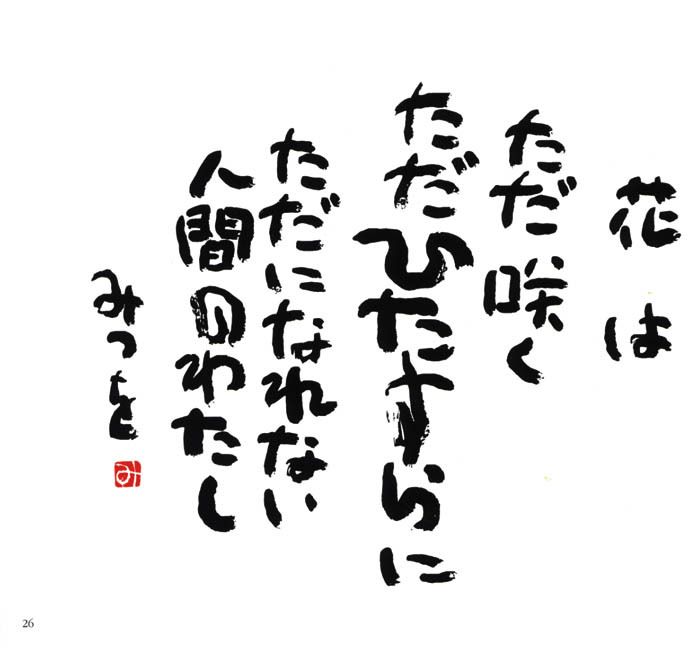 花は
ただ咲く
ただひたすらに
ただになれない
人間のわたし
みつを
み
26